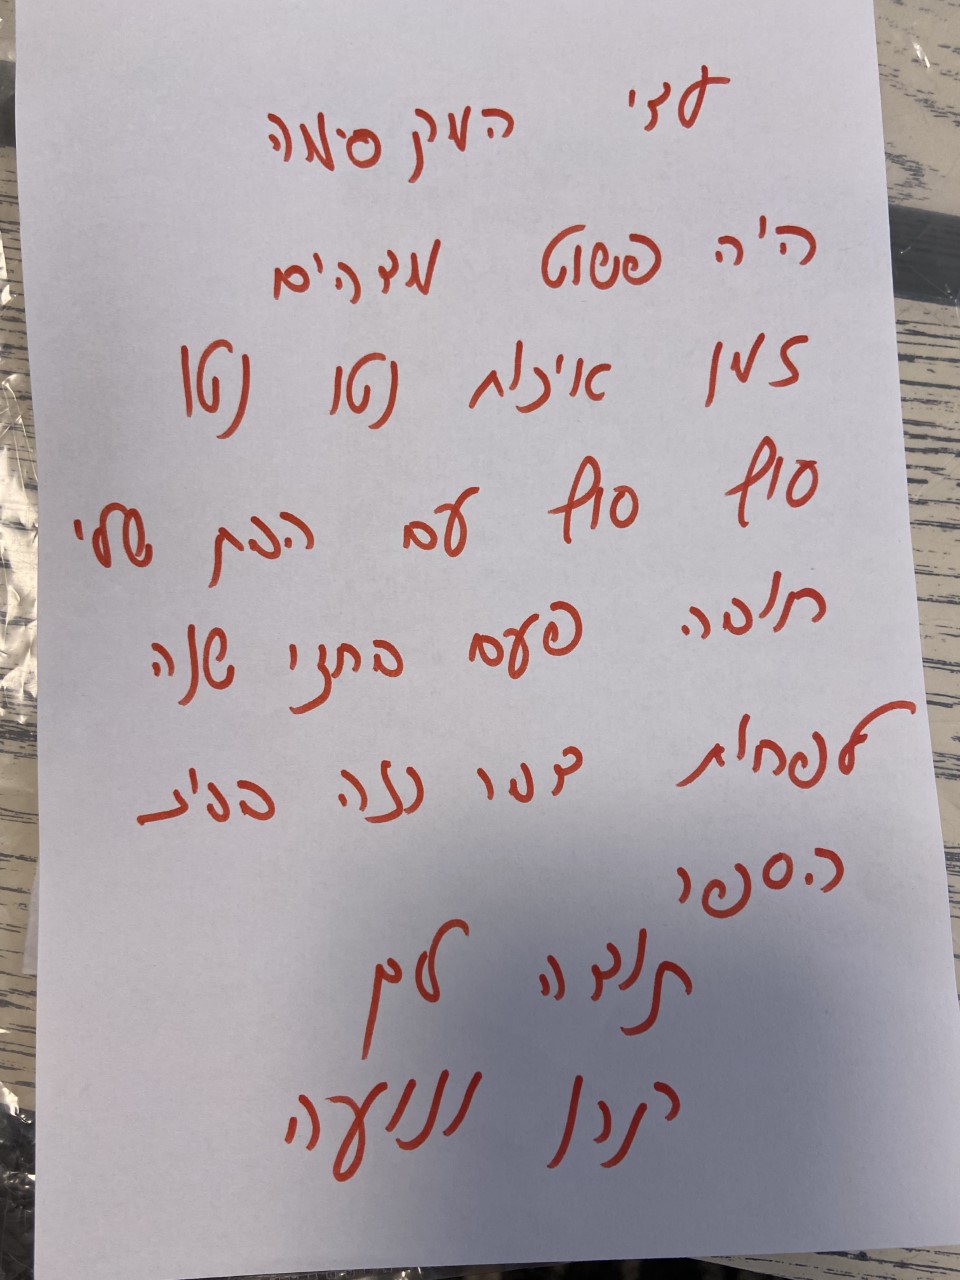 עדי המקסימה
היה פשוט מדהים
זמן איכות נטו נטו
סוף סוף עם הבת שלי
חובה פעם בחצי שנה
לפחות דבר כזה בבית
הספר
תודה לך
קרן ונועה